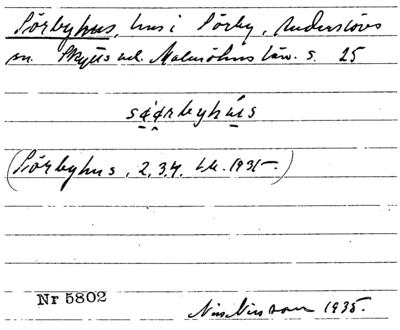 Sörbyhus, hus i Sörby, Anderslövs
sn. Skytts hd. Malmöhus län. s. 25
(Sörbyhus, 2, 3, 4. 1935.)
Nr 5802
Nils Nilsson 1935.